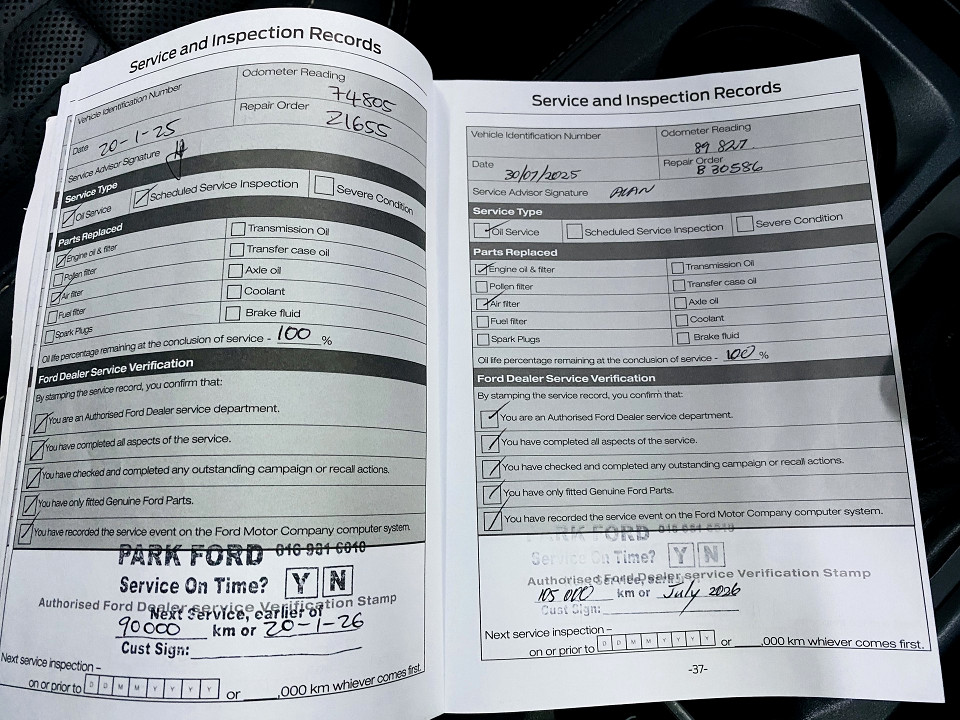 Service and Inspection Records
Vehicle Identification Number
Odometer Reading
74805
Date 20-1-25
Repair Order
21655
Service Advisor Signature
Service Type
Oil Service
Scheduled Service Inspection
Severe Condition
Parts Replaced
Engine oil & filter
Transmission Oil
Pollen filter
Transfer case oil
Air filter
Axle oil
Fuel filter
Coolant
Spark Plugs
Brake fluid
Oil life percentage remaining at the conclusion of service - 100 %
Ford Dealer Service Verification
By stamping the service record, you confirm that:
You are an Authorised Ford Dealer service department.
You have completed all aspects of the service.
You have checked and completed any outstanding campaign or recall actions.
You have only fitted Genuine Ford Parts.
You have recorded the service event on the Ford Motor Company computer system.
PARK FORD
Service On Time? Y N
Authorised Ford Dealer service Verification Stamp
Next Service, earlier of
90000 km or 20-1-26
Cust Sign:
Next service inspection –
on or prior to D D M M Y Y Y Y or ,000 km whiever comes first.
Service and Inspection Records
Vehicle Identification Number
Odometer Reading
89 827
Date 30/07/2025
Repair Order
B 30586
Service Advisor Signature ALAN
Service Type
Oil Service
Scheduled Service Inspection
Severe Condition
Parts Replaced
Engine oil & filter
Transmission Oil
Pollen filter
Transfer case oil
Air filter
Axle oil
Fuel filter
Coolant
Spark Plugs
Brake fluid
Oil life percentage remaining at the conclusion of service - 100 %
Ford Dealer Service Verification
By stamping the service record, you confirm that:
You are an Authorised Ford Dealer service department.
You have completed all aspects of the service.
You have checked and completed any outstanding campaign or recall actions.
You have only fitted Genuine Ford Parts.
You have recorded the service event on the Ford Motor Company computer system.
PARK FORD
Service On Time? Y N
Authorised Ford Dealer service Verification Stamp
105 000 km or July 2026
Cust Sign:
Next service inspection –
on or prior to D D M M Y Y Y Y or ,000 km whiever comes first.
-37-